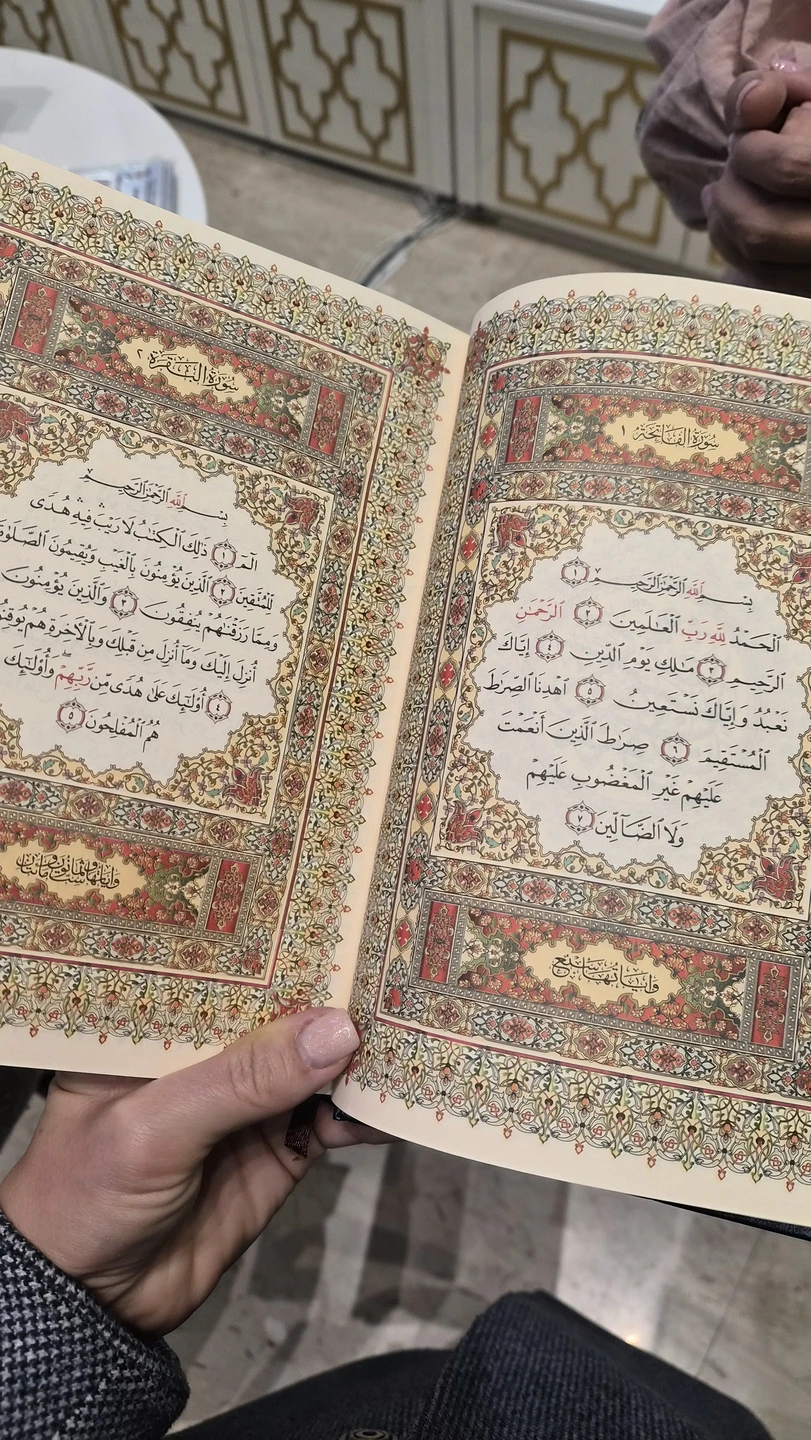 سُورَةُ الفَاتِحَةِ ١
بِسْمِ ٱللَّهِ ٱلرَّحْمَٰنِ ٱلرَّحِيمِ ١
ٱلْحَمْدُ لِلَّهِ رَبِّ ٱلْعَٰلَمِينَ ٢ ٱلرَّحْمَٰنِ
ٱلرَّحِيمِ ٣ مَٰلِكِ يَوْمِ ٱلدِّينِ ٤ إِيَّاكَ
نَعْبُدُ وَإِيَّاكَ نَسْتَعِينُ ٥ ٱهْدِنَا ٱلصِّرَٰطَ
ٱلْمُسْتَقِيمَ ٦ صِرَٰطَ ٱلَّذِينَ أَنْعَمْتَ
عَلَيْهِمْ غَيْرِ ٱلْمَغْضُوبِ عَلَيْهِمْ
وَلَا ٱلضَّآلِّينَ ٧
وَآيَاتُهَا سَبْعٌ
سُورَةُ البَقَرَةِ ٢
بِسْمِ ٱللَّهِ ٱلرَّحْمَٰنِ ٱلرَّحِيمِ
الٓمٓ ١ ذَٰلِكَ ٱلْكِتَٰبُ لَا رَيْبَ ۛ فِيهِ ۛ هُدًى
لِّلْمُتَّقِينَ ٢ ٱلَّذِينَ يُؤْمِنُونَ بِٱلْغَيْبِ وَيُقِيمُونَ ٱلصَّلَوٰةَ
وَمِمَّا رَزَقْنَٰهُمْ يُنفِقُونَ ٣ وَٱلَّذِينَ يُؤْمِنُونَ
أُنزِلَ إِلَيْكَ وَمَآ أُنزِلَ مِن قَبْلِكَ وَبِٱلْأَخِرَةِ هُمْ يُوقِنُونَ
٤ أُو۟لَٰٓئِكَ عَلَىٰ هُدًى مِّن رَّبِّهِمْ ۖ وَأُو۟لَٰٓئِكَ
هُمُ ٱلْمُفْلِحُونَ ٥
وَآيَاتُهَا سِتٌّ وَثَمَانُونَ وَمِائَتَانِ